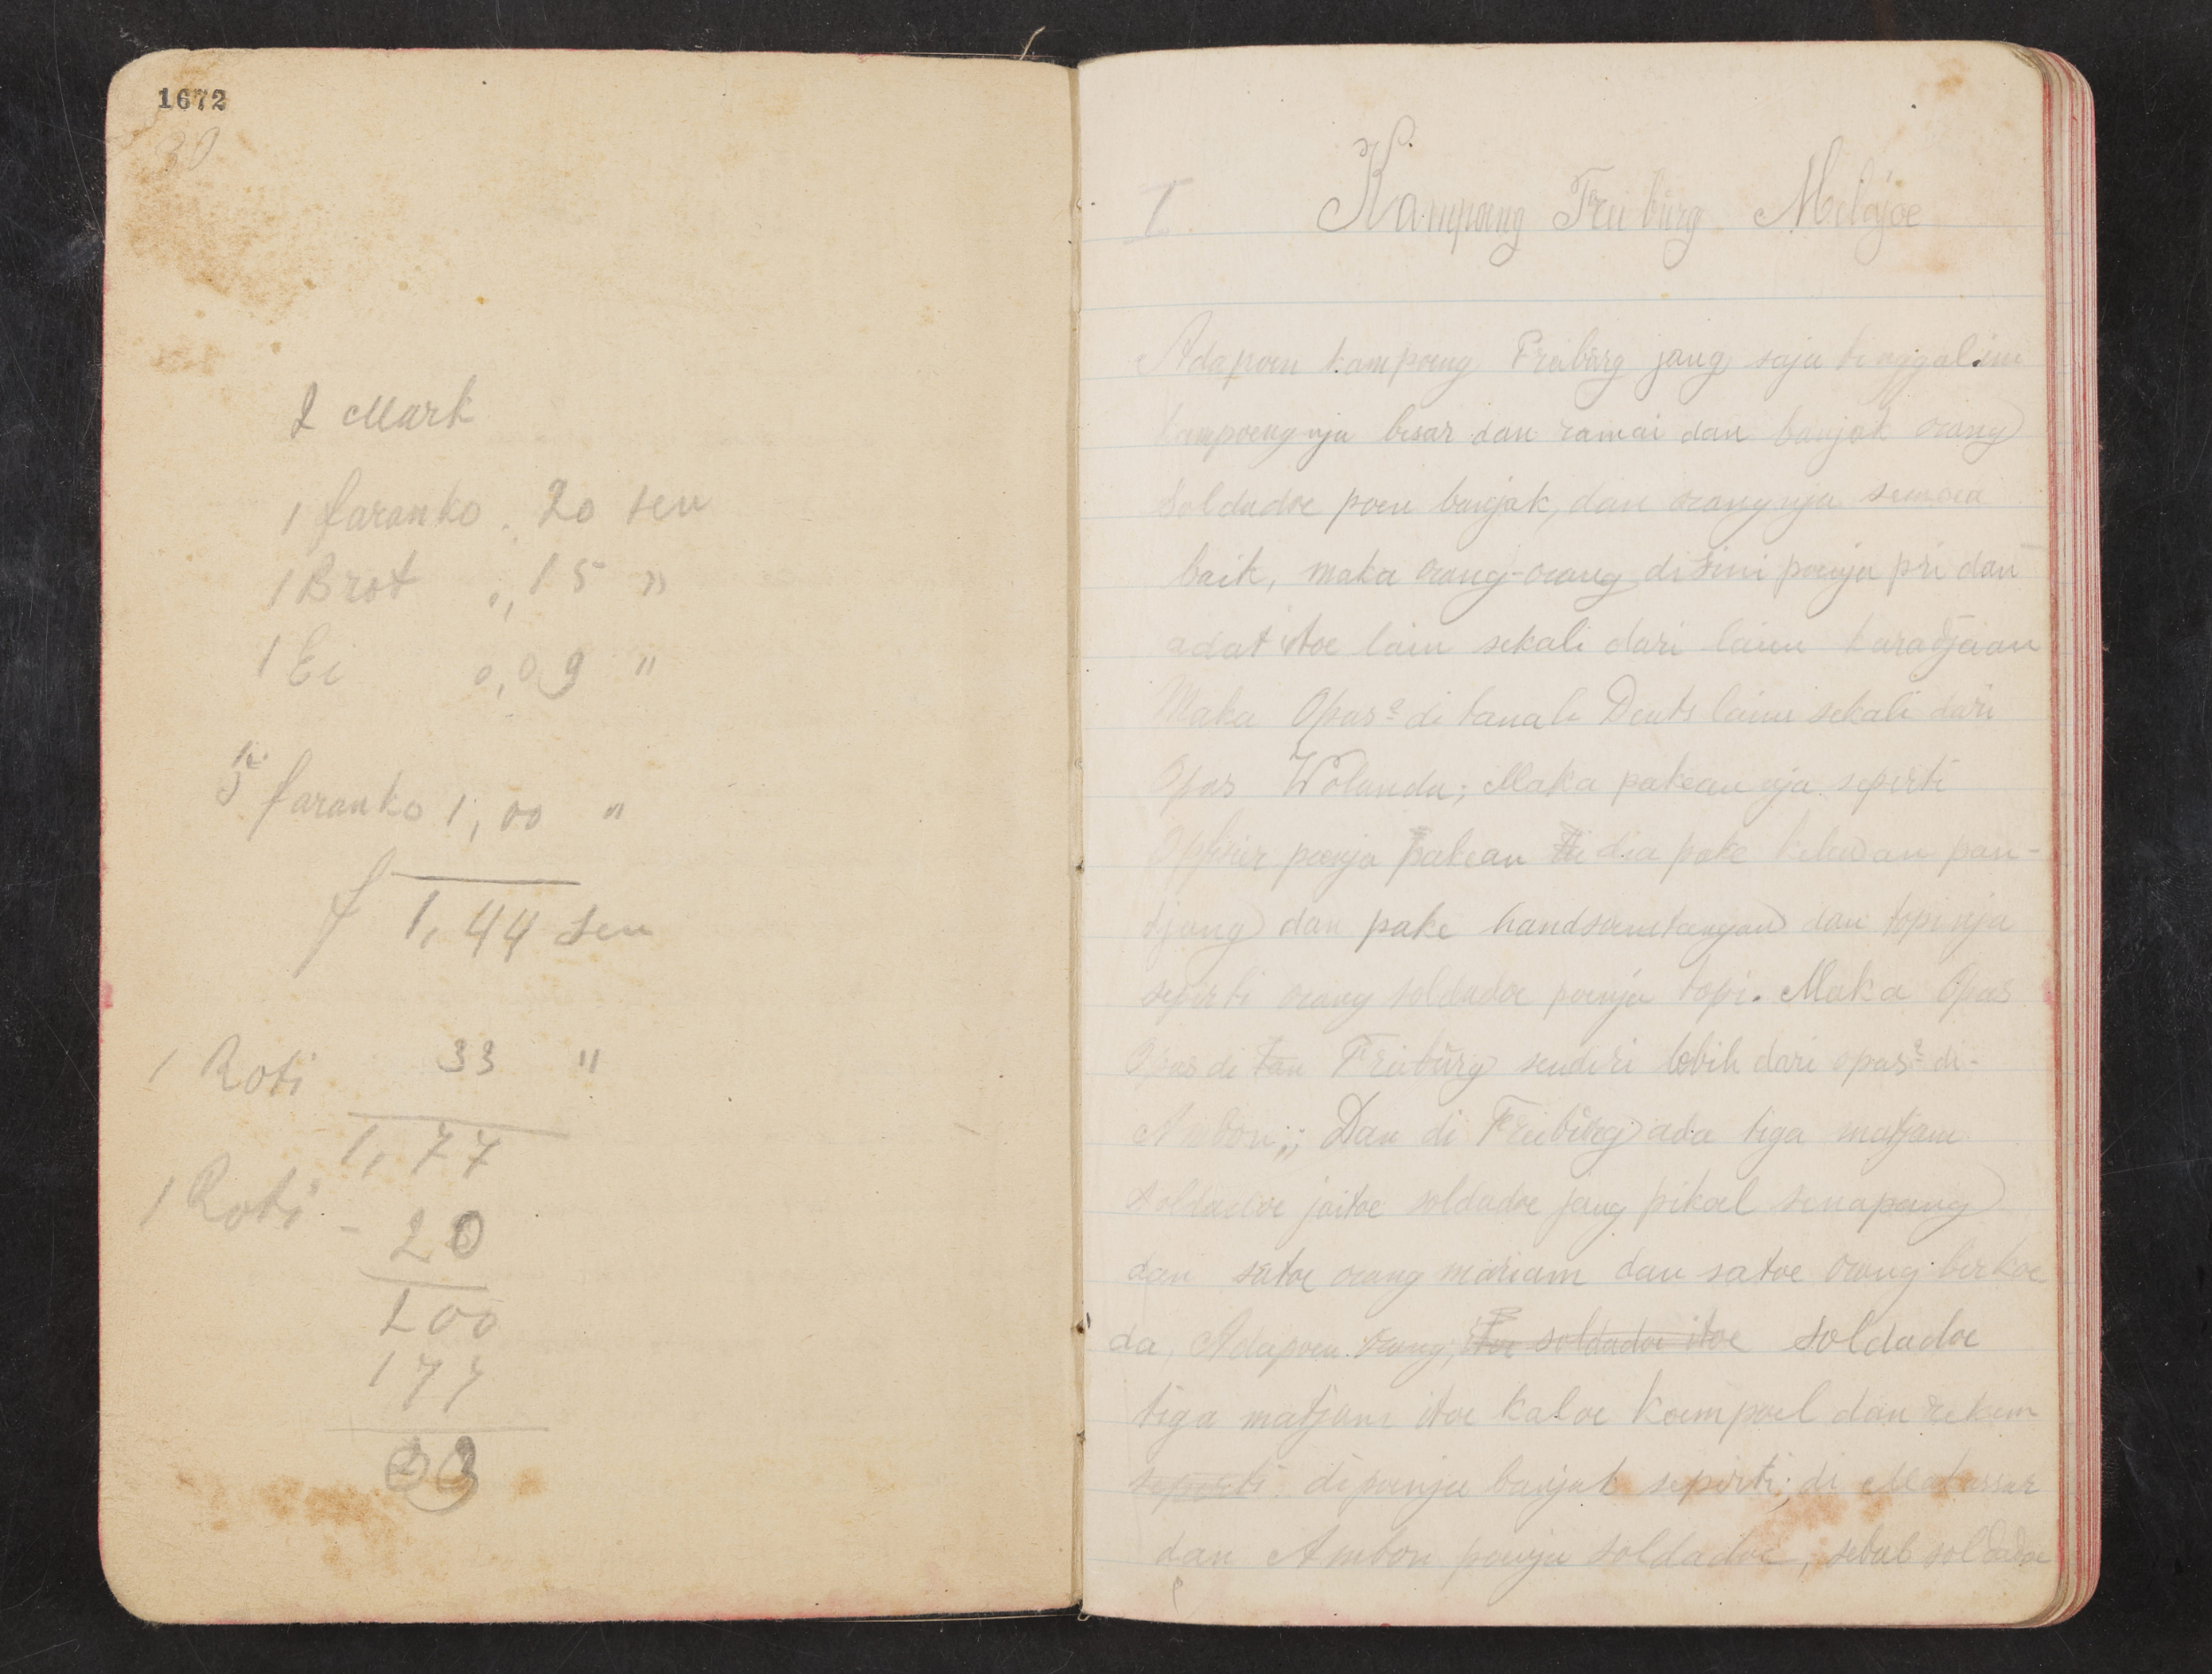 1672
30
2 Mark
1 faranko . 20 sen
1 Brot 0,15 "
1 Ei 0,09 "
5 faranko 1,00 "
f 1,44 sen
1 Roti 33 "
1,77
1 Roti - 20
200
177
23
I. Kampong Freibūrg Melajoe
Adapoen kampoeng Freibūrg jang saja tinggal ini
kampoengnja besar dan ramai dan banjak orang
Soldadoe poen banjak, dan orangnja semoea
baik, maka orang-orang disini poenja pri dan
adat itoe lain sekali dari lain karadjaan
Maka Opas² di tanah Deuts lain sekali dari
Opas Wolanda; Maka pakeannja seperti
Opfisier poenja pakean dia pake kelewan pan-
tjang dan pake handsoentangan dan topinja
seperti orang soldadoe poenja topi. Maka Opas
Opas di tan Freibūrg sendiri lebih dari opas² di-
Ambon;; Dan di Freibūrg ada tiga matjam
soldadoe jaitoe soldadoe jang pikoel senapang
dan satoe orang mariam dan satoe orang berkoe
da, Adapoen orang, itoe soldadoe itoe soldadoe
tiga matjam itoe kaloe koempoel dan
seperti dipoenja banjak seperti; di Makassar
dan Ambon poenja soldadoe, sebab soldadoe